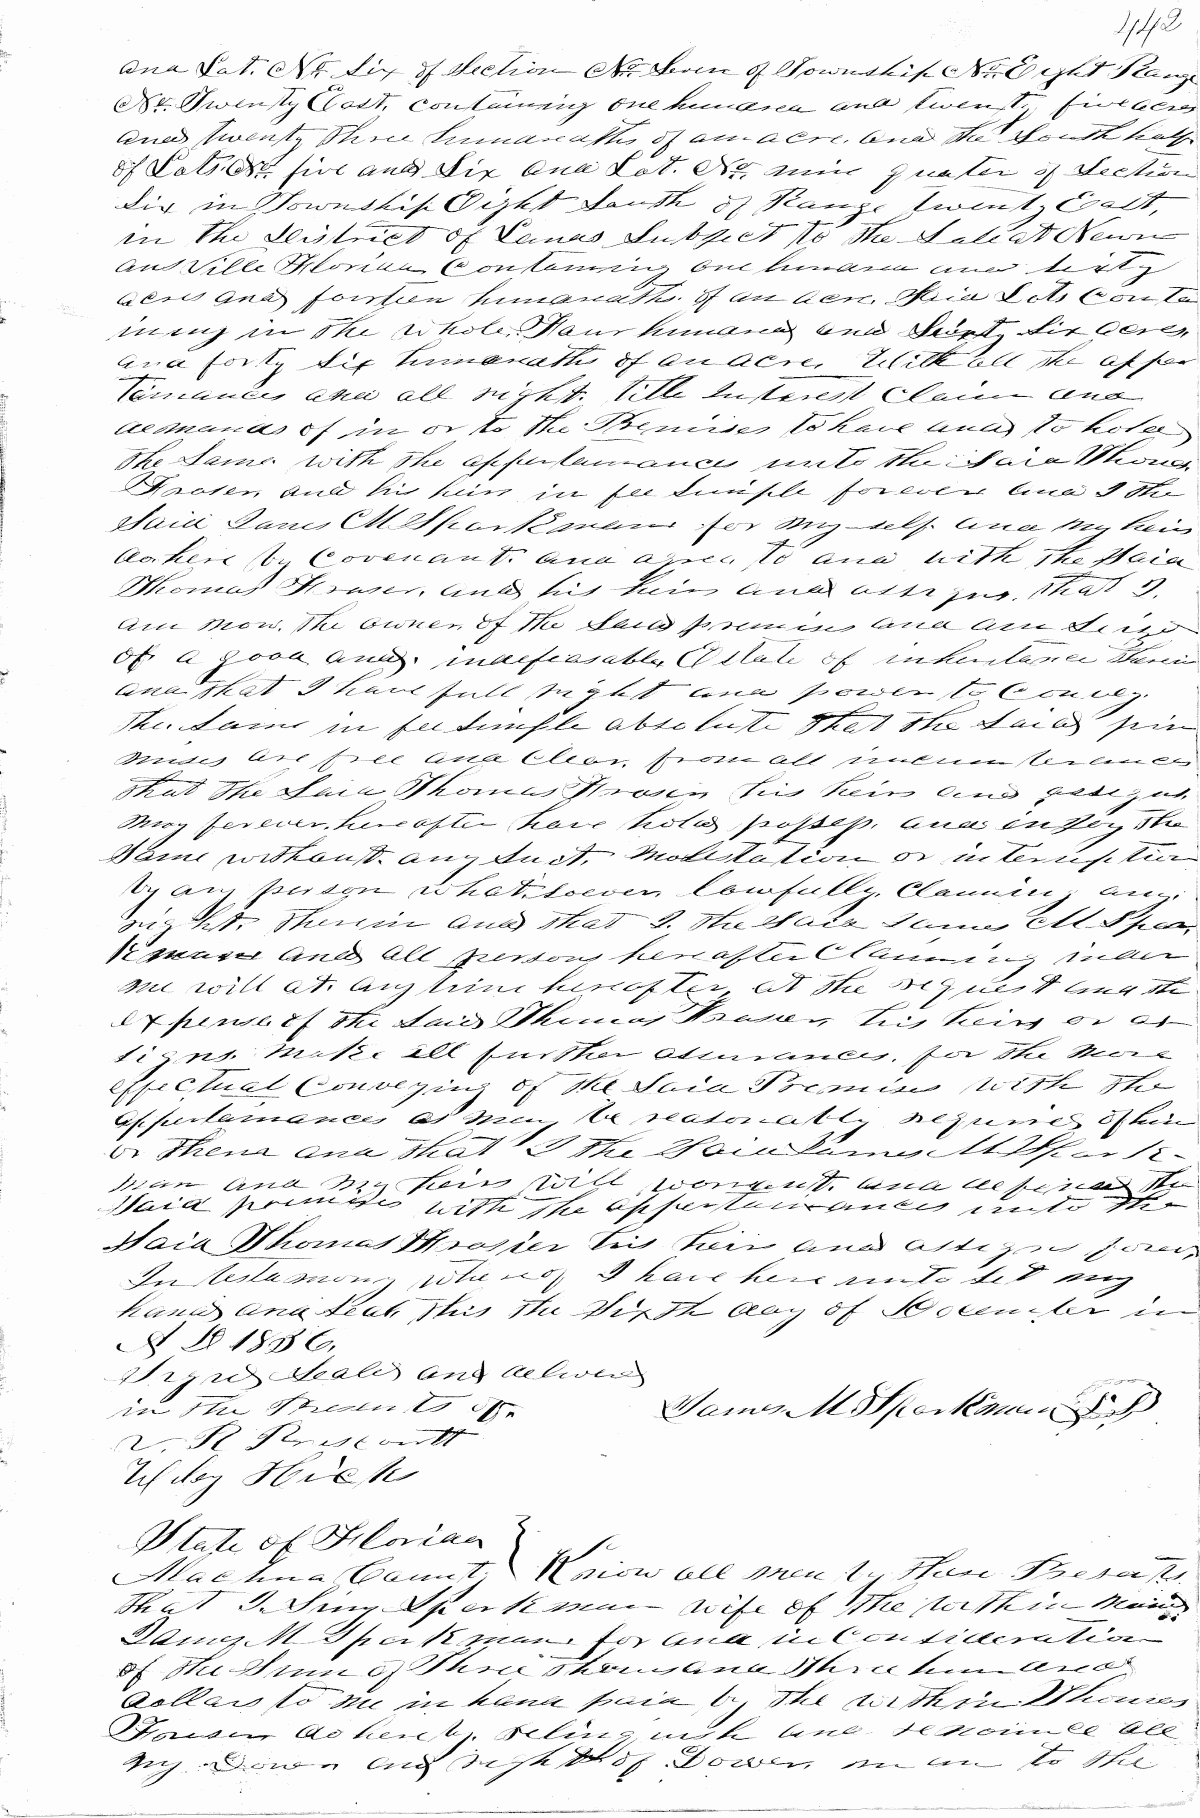 442
and Lot. No. Six of Section No. Seven of Township No. Eight Range
No. Twenty East. containing one hundred and twenty five acres
and twenty three hundreaths of an acre. and the South half
of Lots No. five and Six and Lot. No. nine quater of Section
Six in Township Eight South of Range twenty East,
in the District of Lands Subject to the Sale at Newn
ans Ville Florida Containing one hundred and sixty
acres and fourteen hundreaths. of an acre. Said Lots Conta
ining in the whole. Four hundred and Sixty Six acres
and forty Six hundreaths of an acre. With all the apper
tainances and all right. title Interest Claim and
demands of in or to the Premises to have and to hold
the Same. with the appertainances unto the Said Thomas
Frasier and his heirs in fee Simple forever and I the
Said James M Sparkman for my-self and my heirs
do here by Covenant. and agree to and with the Said
Thomas Fraser. and his heirs and assigns. that I.
am now. the owner of the Said premises and am Seized
of a good and. indefeasable Estate of inheritance therein
and that I have full right and power to Convey.
the Same in fee Simple absolute that the Said prem
mises are free and Clear. from all incumberances
that the Said Thomas Frasier his heirs and assigns
may forever. hereafter have hold possess. and injoy the
Same without. any Suit. Molestation or interruption
by any person whatsoever lawfully. Claiming any.
right. therein and that I. the Said James M Spar
kman and all persons hereafter Claiming under
me will at. any time hereafter at the request and the
expense of the Said Thomas Frasier his heirs or as
signs. make all further assurances. for the more
effectual Conveying of the Said Premises with the
appertainances as may be reasonably required of him
or them and that I the Said James M Spark-
man and my heirs will warrent. and defend the
Said premises with the appertainances unto the
Said Thomas Frasier his heirs and assigns forever
In testamony whereof I have here unto Set my
hand and Seal. this the Sixth day of December in
A D 1856.
Signed Sealed and delivered
in the Presents of.
James M Sparkman L S
R Prescoutt
Wiley Hicks
State of Florida
Alachua County Know all men by these Presents
that I. Sparkman wife of the within named
James M Sparkman for and in Consideration
of the Sum of Three thousand three hundred
dollars to me in hand paid by the within Thomas
Frasier do hereby relinquish and renounce all
my Dower and right of Dower in an to the